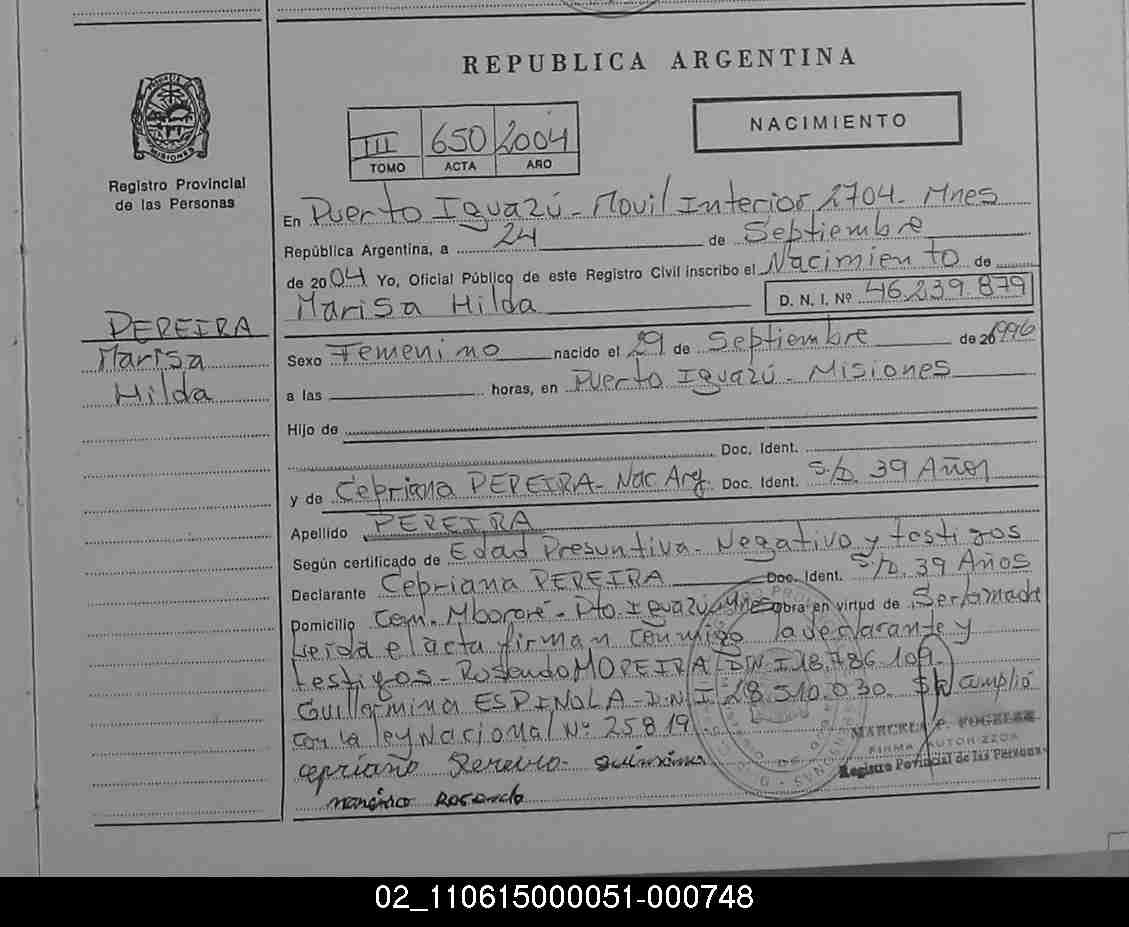 REPUBLICA ARGENTINA
NACIMIENTO
III 650 2004
TOMO ACTA AÑO
MISIONES
Registro Provincial
de las Personas
En Puerto Iguazú - Movil Interior 2704 - Mnes
República Argentina, a 24 de Septiembre
de 2004 Yo, Oficial Público de este Registro Civil inscribo el Nacimiento de
Marisa Hilda D. N. I. Nº 46.239.879
PEREIRA
Marisa
Hilda
Sexo Femenino nacido el 29 de Septiembre de 20 1996
a las horas, en Puerto Iguazú - Misiones
Hijo de
Doc. Ident.
y de Cepriana PEREIRA - Nac Arg. Doc. Ident. S/D. 39 Años
Apellido PEREIRA
Según certificado de Edad Presuntiva - Negativo y testigos
Declarante Cepriana PEREIRA Doc. Ident. S/D. 39 Años
Domicilio Com. Mbororé - Pto Iguazú Mnes obra en virtud de Ser la madre
Leida el acta firman conmigo la declarante y
testigos - Rosendo MOREIRA DNI 18.786.109.
Guillermina ESPINOLA - D.N.I 28.510.030. Se cumplió
con la ley Nacional Nº 25819.
MARCELA
FIRMA AUTORIZADA
Registro Provincial de las Personas
Rosendo
02_110615000051-000748